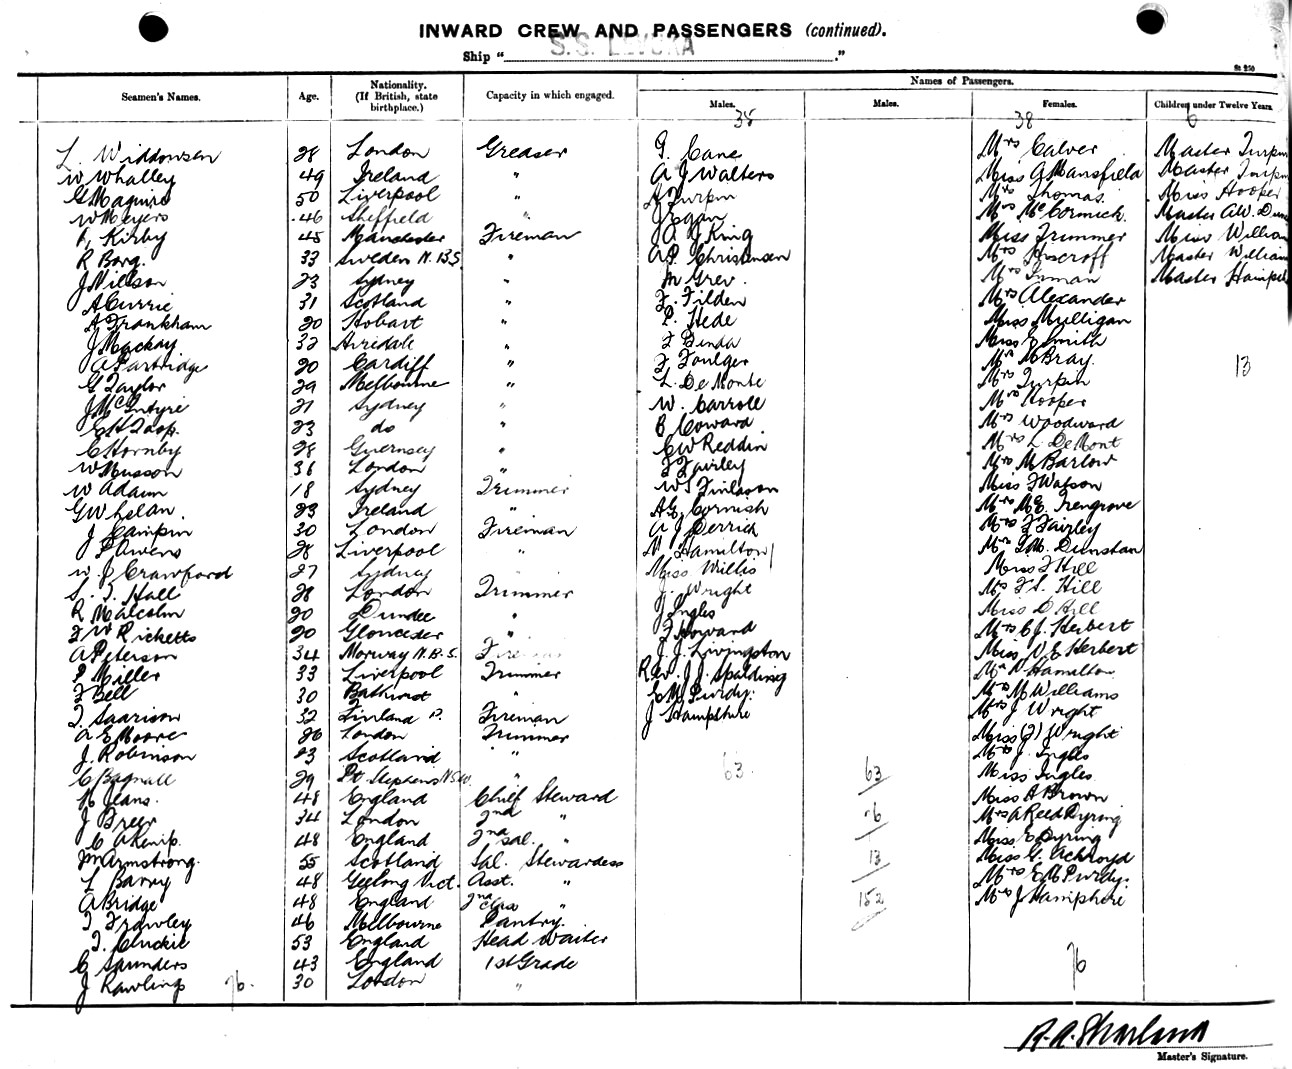 INWARD CREW AND PASSENGERS (continued).
Ship "S.S. LEVUKA"
St 250
Seamen's Names. Age. Nationality. (If British, state birthplace.) Capacity in which engaged. Names of Passengers.
Males. Males. Females. Children under Twelve Years.
38 38 6
L. Widdowsen 28 London Greaser F. Cane Mrs Calver Master Turpin
W Whalley 49 Ireland " A J Walters Miss G Mansfield Master Turpin
G Maguire 50 Liverpool " A Turpin Mrs Thomas Miss Hooper
W Meyers 46 Sheffield " J Egan Mrs McCormick Master A.W. Dun
Kirby 45 Manchester Fireman A J King Miss Trimmer Miss William
R Borg. 33 Sweden N.B.S. " A P. Christensen Mrs Master William
J Nielson 23 Sydney " M Grev. Mrs Inman Master Hampsh
A Currie 31 Scotland " F. Filden Mrs Alexander
A Frankham 20 Hobart " P. Hede Miss Mulligan
J Mackay 32 " F Miss E Smith
A Partridge 20 Cardiff " F Foulger M Bray. 13
G Taylor 29 Melbourne " L. De Monte Mrs Turpin
J McIntyre 21 Sydney " W. Carroll Mrs Hooper
23 do " Coward Mrs Woodward
C Hornby 28 Guernsey " C W Reddin Mrs L De Mont
W Musson 36 London " F Fairley Mrs M Barlow
W Adam 18 Sydney Trimmer W S Finlason Miss F Watson
G Whelan. 23 Ireland " A E Cornish Mrs M E. Trengrove
J Campin 30 London Fireman A J Derrick Mrs F Fairley
P Owens 28 Liverpool " Hamilton Mrs F M. Dunstan
W. J Crawford 27 Sydney " Miss Willis Miss F Hill
S. T. Hall 28 London Trimmer J. Wright Mrs F S. Hill
R Malcolm 20 Dundee " J Ingles Miss D Hill
F W Ricketts 20 Glouceder " F Howard Mrs C J. Herbert
A Peterson 34 Norway N.B.S. Fireman J. J. Livingston Miss V E Herbert
P Miller 33 Liverpool Trimmer Rev. J J. Spalding Hamilton
F Bell 30 Bathurst " E M Purdy. Mrs M Williams
T. Saarison 32 Finland Fireman J Hampshire Mrs J Wright
A E Moore 20 London Trimmer Miss (J) Wright
J. Robinson 23 Scotland " Mrs J. Ingles
C Bagnall 29 Pt. Stephens NSW " 63 63 Miss Ingles
Jeans. 48 England Chief Steward Miss A Brown
J Breer 34 London 2nd " 76 Mrs A Reed Dyring
C A Kenip. 48 England 2nd Sal. " Miss E Dyring
M Armstrong. 55 Scotland Sal. Stewardess 13 Miss G. Achroyd
L Barry 48 Geelong Vict. Asst. " Mrs E M Purdy.
A Bridge 48 England 2nd Class " 152 Mrs J Hampshire
T Frawley 46 Melbourne Pantry.
T. Cluckie 53 England Head Waiter
C Saunders 43 England 1st Grade 76
J Rawlings 76. 30 London "
R. A. Sharland
Master's Signature.